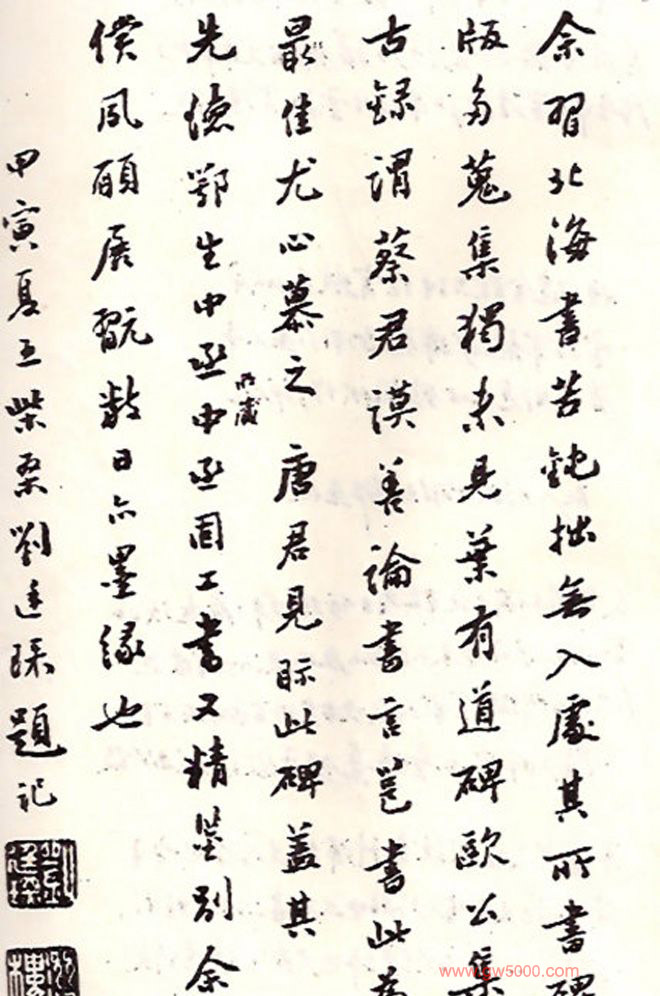 余習北海書苦鈍拙無入處其所書碑
版多蒐集獨未見葉有道碑歐公集
古錄謂蔡君謨善論書言邕書此為
最佳尤心慕之唐君見眎此碑蓋其
先德鄂生中丞所藏中丞固工書又精鑒別余
償夙願展翫數日亦墨緣也
甲寅夏五柴桑劉廷琛題記
www.sw5000.com